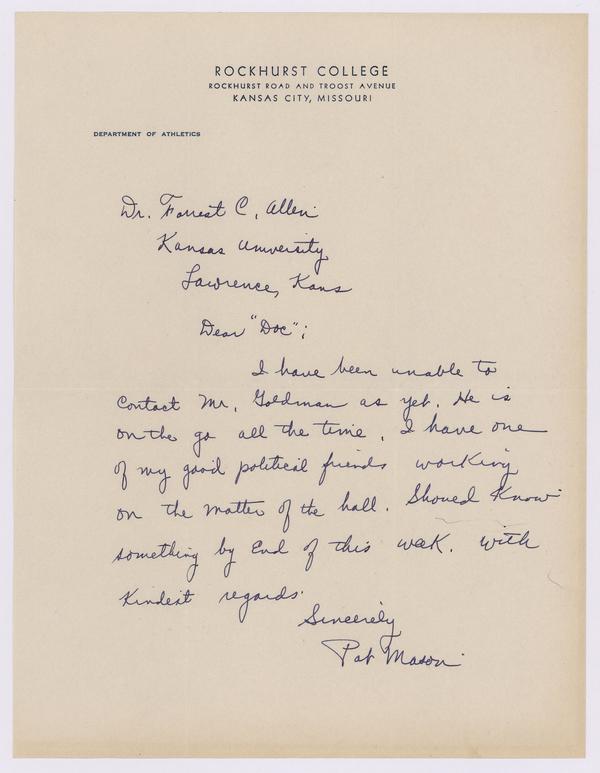 ROCKHURST COLLEGE
ROCKHURST ROAD AND TROOST AVENUE
KANSAS CITY, MISSOURI
DEPARTMENT OF ATHLETICS
Dr. Forrest C. Allen
Kansas University
Lawrence, Kans
Dear "Doc";
I have been unable to
contact Mr. Goldman as yet. He is
on the go all the time. I have one
of my good political friends working
on the matter of the hall. Should Know
something by End of this week. With
Kindest regards.
Sincerely
Pat Mason